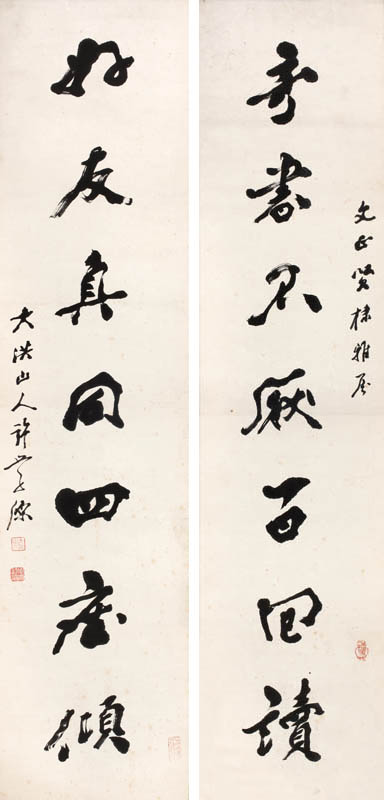 文正賢棣雅属
奇書不厭百回讀
好友真同四座傾
大洪山人許